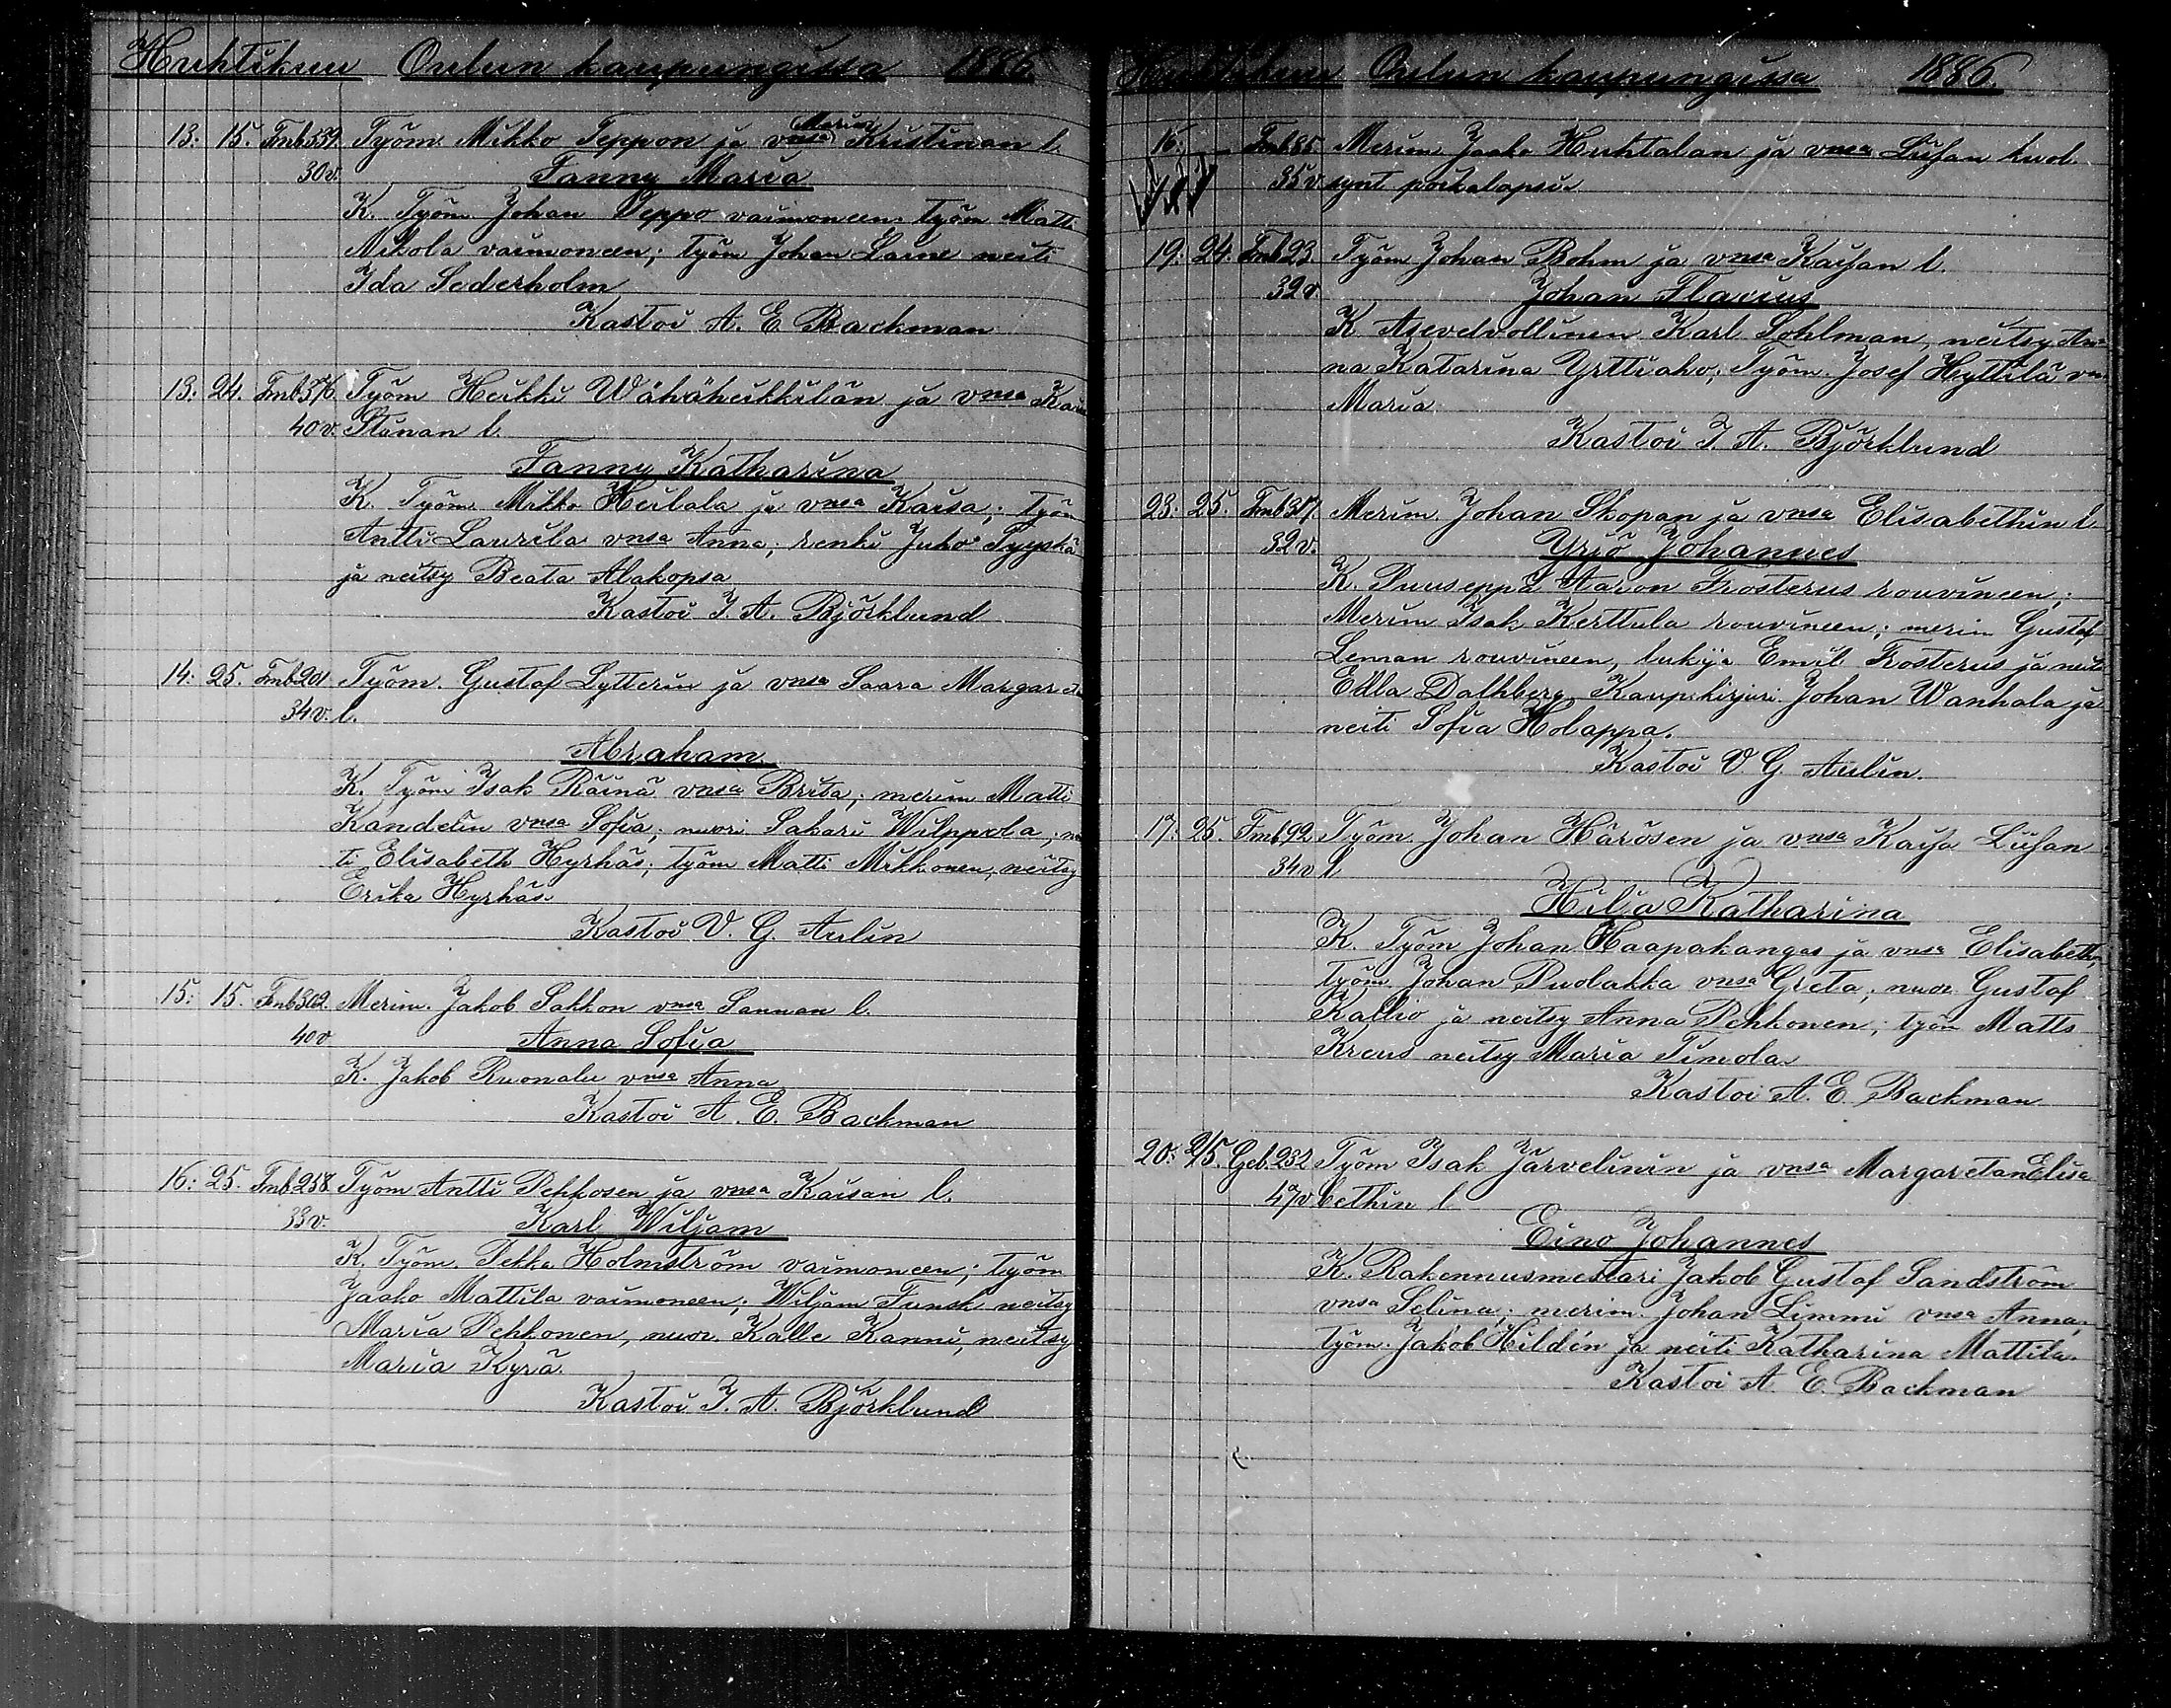 Huhtikuu Oulun kaupungissa 1886.
13: 15. Fmb539. Työm. Mikko Teppon ja vnsa Maria Kristinan l.
30v. Fanny Maria
K. Työm Johan Teppo vaimoneen; työm Matti
Nikola vaimoneen; työm Johan Laine neiti
Ida Sederholm
Kastoi A. E. Backman
13: 24. Fmb376. Työm Heikki Wähäheikkilän ja vnsa Kaisa
40v. Stinan l.
Fanny Katharina
K. Työm. Mikko Heilala ja vnsa Kaisa; työm
Antti Laurila vnsa Anna; renki Juho Tyyskä
ja neitsy Beata Alakopsa
Kastoi J. A. Björklund
14: 25. Fmb201 Työm. Gustaf Lytterin ja vnsa Saara Margareta
34v. l.
Abraham
K. Työm Isak Räinä vnsa Brita; merim Matti
Kandelin vnsa Sofia; nuori Sakari Wilppola; nei
ti Elisabeth Hyrkäs; työm Matti Mikkonen, neitsy
Erika Hyrkäs.
Kastoi V. G. Aulin
15: 15. Fmb302. Merim. Jakob Sakkon vnsa Sannan l.
40v Anna Sofia
K. Jakob Ruonala vnsa Anna
Kastoi A. E. Backman
16: 25. Fmb258. Työm Antti Pehkosen ja vnsa Kaisan l.
33v. Karl Wiljam
K. Työm. Pekka Holmström vaimoneen; työm
Jaako Mattila vaimoneen; Wiljam Funsk neitsy
Maria Pehkonen, nuor. Kalle Kanni, neitsy
Maria Kyrä.
Kastoi J. A. Björklund
Huhtikuu Oulun kaupungissa 1886.
16: Fmb85 Merim Jaako Huhtalan ja vnsa Liisan kuol.
35v synt poikalapsi.
19: 24. Fmb23 Työm Johan Bohm ja vnsa Kaisan l.
32v. Johan Flavius
K Asevelvollinen Karl Sohlman, neitsy An
na Katarina Yrttiaho; Työm. Josef Hyttilä vn
Maria
Kastoi J. A. Björklund
23: 25. Fmb317 Merim. Johan Skopan ja vnsa Elisabethin l.
32v. Yrjö Johannes
K. Puuseppä Aaron Frosterus rouvineen;
Merim Isak Kerttula rouvineen; merim Gustaf
Leman rouvineen, lukija Emil Frosterus ja neiti
Edla Dalhberg Kaup.kirjuri Johan Wanhala ja
neiti Sofia Holappa.
Kastoi V. G. Aulin.
17: 25. Fmb92 Työm. Johan Härösen ja vnsa Kaisa Liisan
34v l
Hilja Katharina
K. Työm Johan Haapakangas ja vnsa Elisabeth;
työm Johan Puolakka vnsa Greta; nuor Gustaf
Kallio ja neitsy Anna Pehkonen; työm Matts
Kreus neitsy Maria Timola
Kastoi A. E. Backman
20: 2/5. Geb.232 Työm Isak Järvelinin ja vnsa Margaretan Elisa
47v bethin l.
Eino Johannes
K. Rakennusmestari Jakob Gustaf Sandström
vnsa Selina; merim. Johan Limmi vnsa Anna;
työm. Jakob Hildén ja neiti Katharina Mattila.
Kastoi A E. Backman